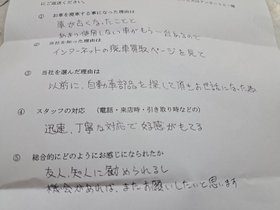 ご返送ください。
① お車を廃車する事になった理由は
車が古くなったことと
あまり使用しない車がもう一台あるので
② 当社を知った理由は
インターネットの廃車買取ページを見て
③ 当社を選んだ理由は
以前に、自動車部品を探して頂きお世話になった為
④ スタッフの対応 (電話・来店時・引き取り時などの)
迅速、丁寧な対応で好感がもてる
⑤ 総合的にどのようにお感じになられたか
友人、知人に勧められるし
機会があれば、またお願いしたいと思います